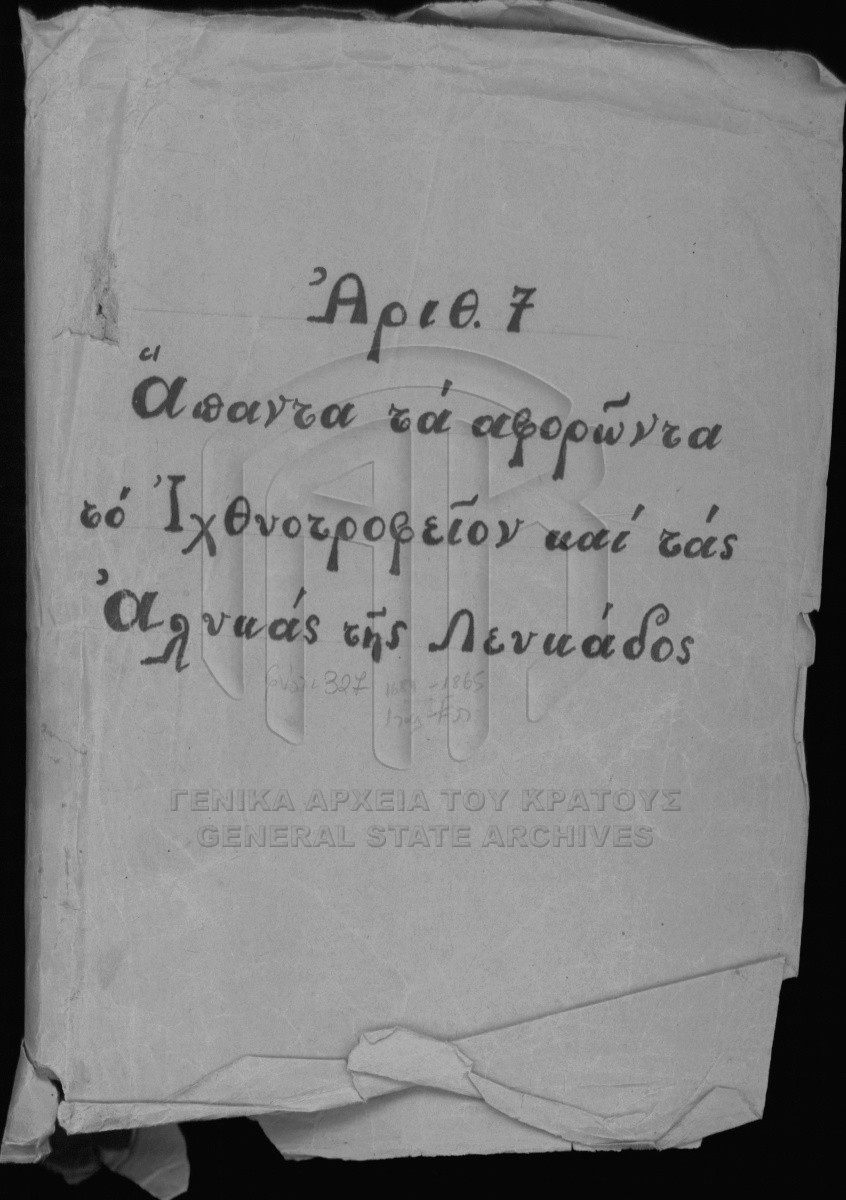 Ἀριθ. 7
Ἅπαντα τά αφορῶντα
τό Ἰχθυοτροφεῖον καί τάς
Ἀλυκάς τῆς Λευκάδος
327 -1865
ΓΕΝΙΚΑ ΑΡΧΕΙΑ ΤΟΥ ΚΡΑΤΟΥΣ
GENERAL STATE ARCHIVES